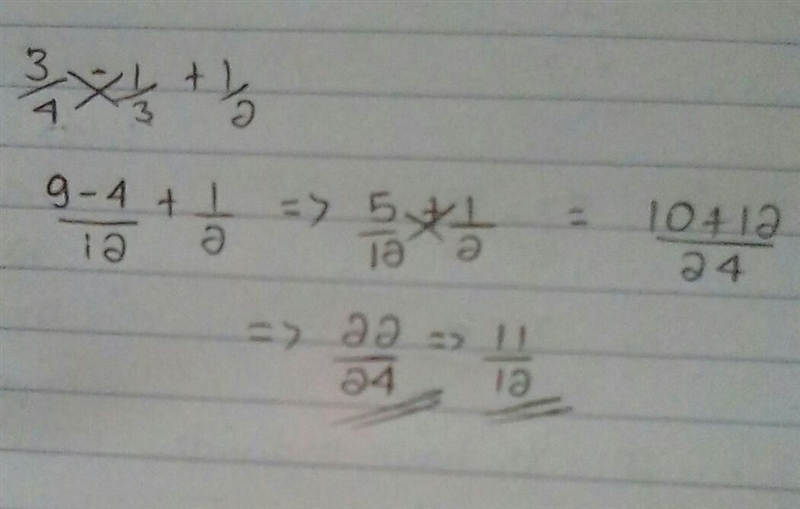 3/4 - 1/3 + 1/2
(9-4)/12 + 1/2 => 5/12 + 1/2 = (10+12)/24
=> 22/24 => 11/12